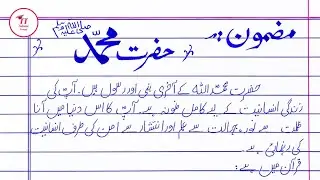 مضمون:
حضرت محمدﷺ
حضرت محمدؐ اللہ کے آخری نبی اور رسول ہیں۔ آپؐ کی
زندگی انسانیت کے لیے کامل نمونہ ہے۔ آپؐ کا اس دنیا میں آنا
ظلمت سے نور، جہالت سے علم اور انتشار سے امن کی طرف انسانیت
کی رہنمائی ہے۔
قرآن میں ہے: